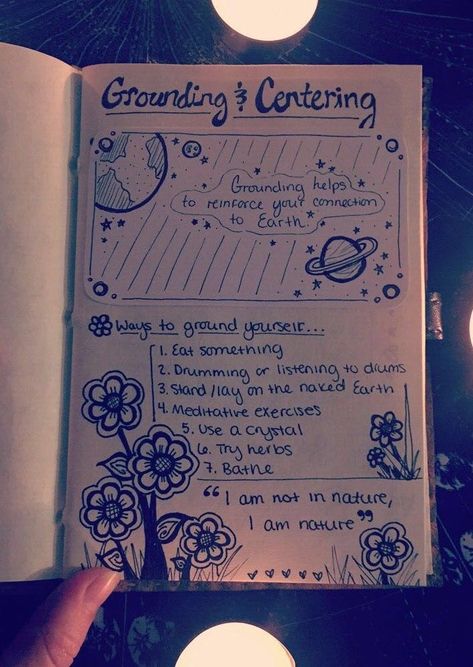 Grounding & Centering
Grounding helps
to reinforce your connection
to Earth.
Ways to ground yourself...
1. Eat something
2. Drumming or listening to drums
3. Stand/lay on the naked Earth
4. Meditative exercises
5. Use a crystal
6. Try herbs
7. Bathe
“I am not in nature,
I am nature”